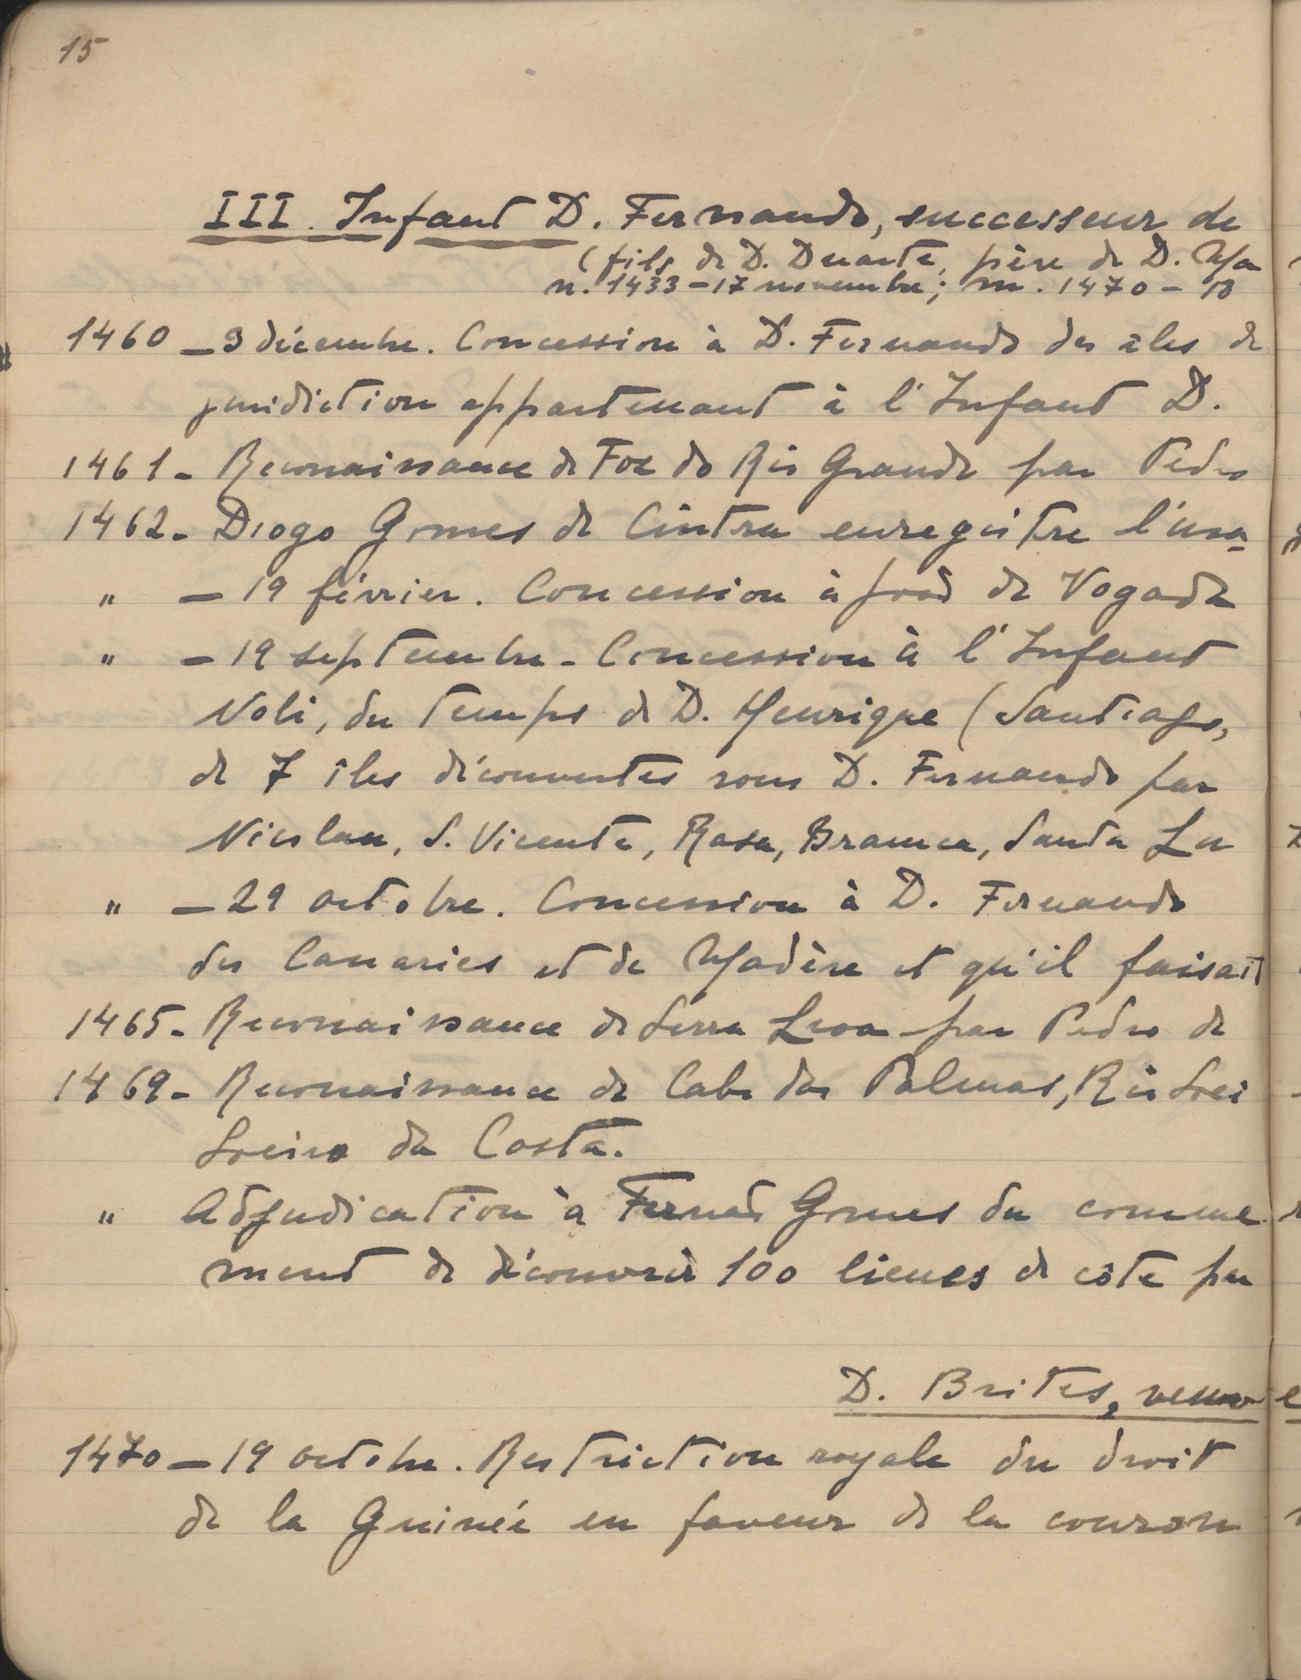 15
III. Infant D. Fernando, successeur de
(fils de D. Duarte, père de D. Ma
n. 1433 – 17 novembre; m. 1470 – 18
1460 – 3 décembre. Concession à D. Fernando des îles de
juridiction appartenant à l'Infant D.
1461 - Reconaissance de Foz do Rio Grande par Pedro
1462 - Diogo Gomes de Cintra enregistre l'usa
" – 19 février. Concession à João de Vogado
" – 19 septembre - Concession à l'Infant
Noli, du temps de D. Henrique (Santiago,
de 7 îles découvertes sous D. Fernando par
Nicolau, S. Vicente, Rasa, Branca, Santa Lu
" – 29 octobre. Concession à D. Fernando
des Canaries et de Madère et qu'il faisait
1465 - Reconaissance de Serra Leoa par Pedro de
1469 - Reconaissance de Cabo das Palmas, Rio Soei
Soeiro da Costa.
" Adjudication à Fernão Gomes du comme
ment de découvrir 100 lieues de côte par
D. Brites, veuve
1470 – 19 octobre. Restriction royale du droit
de la Guinée en faveur de la couronn